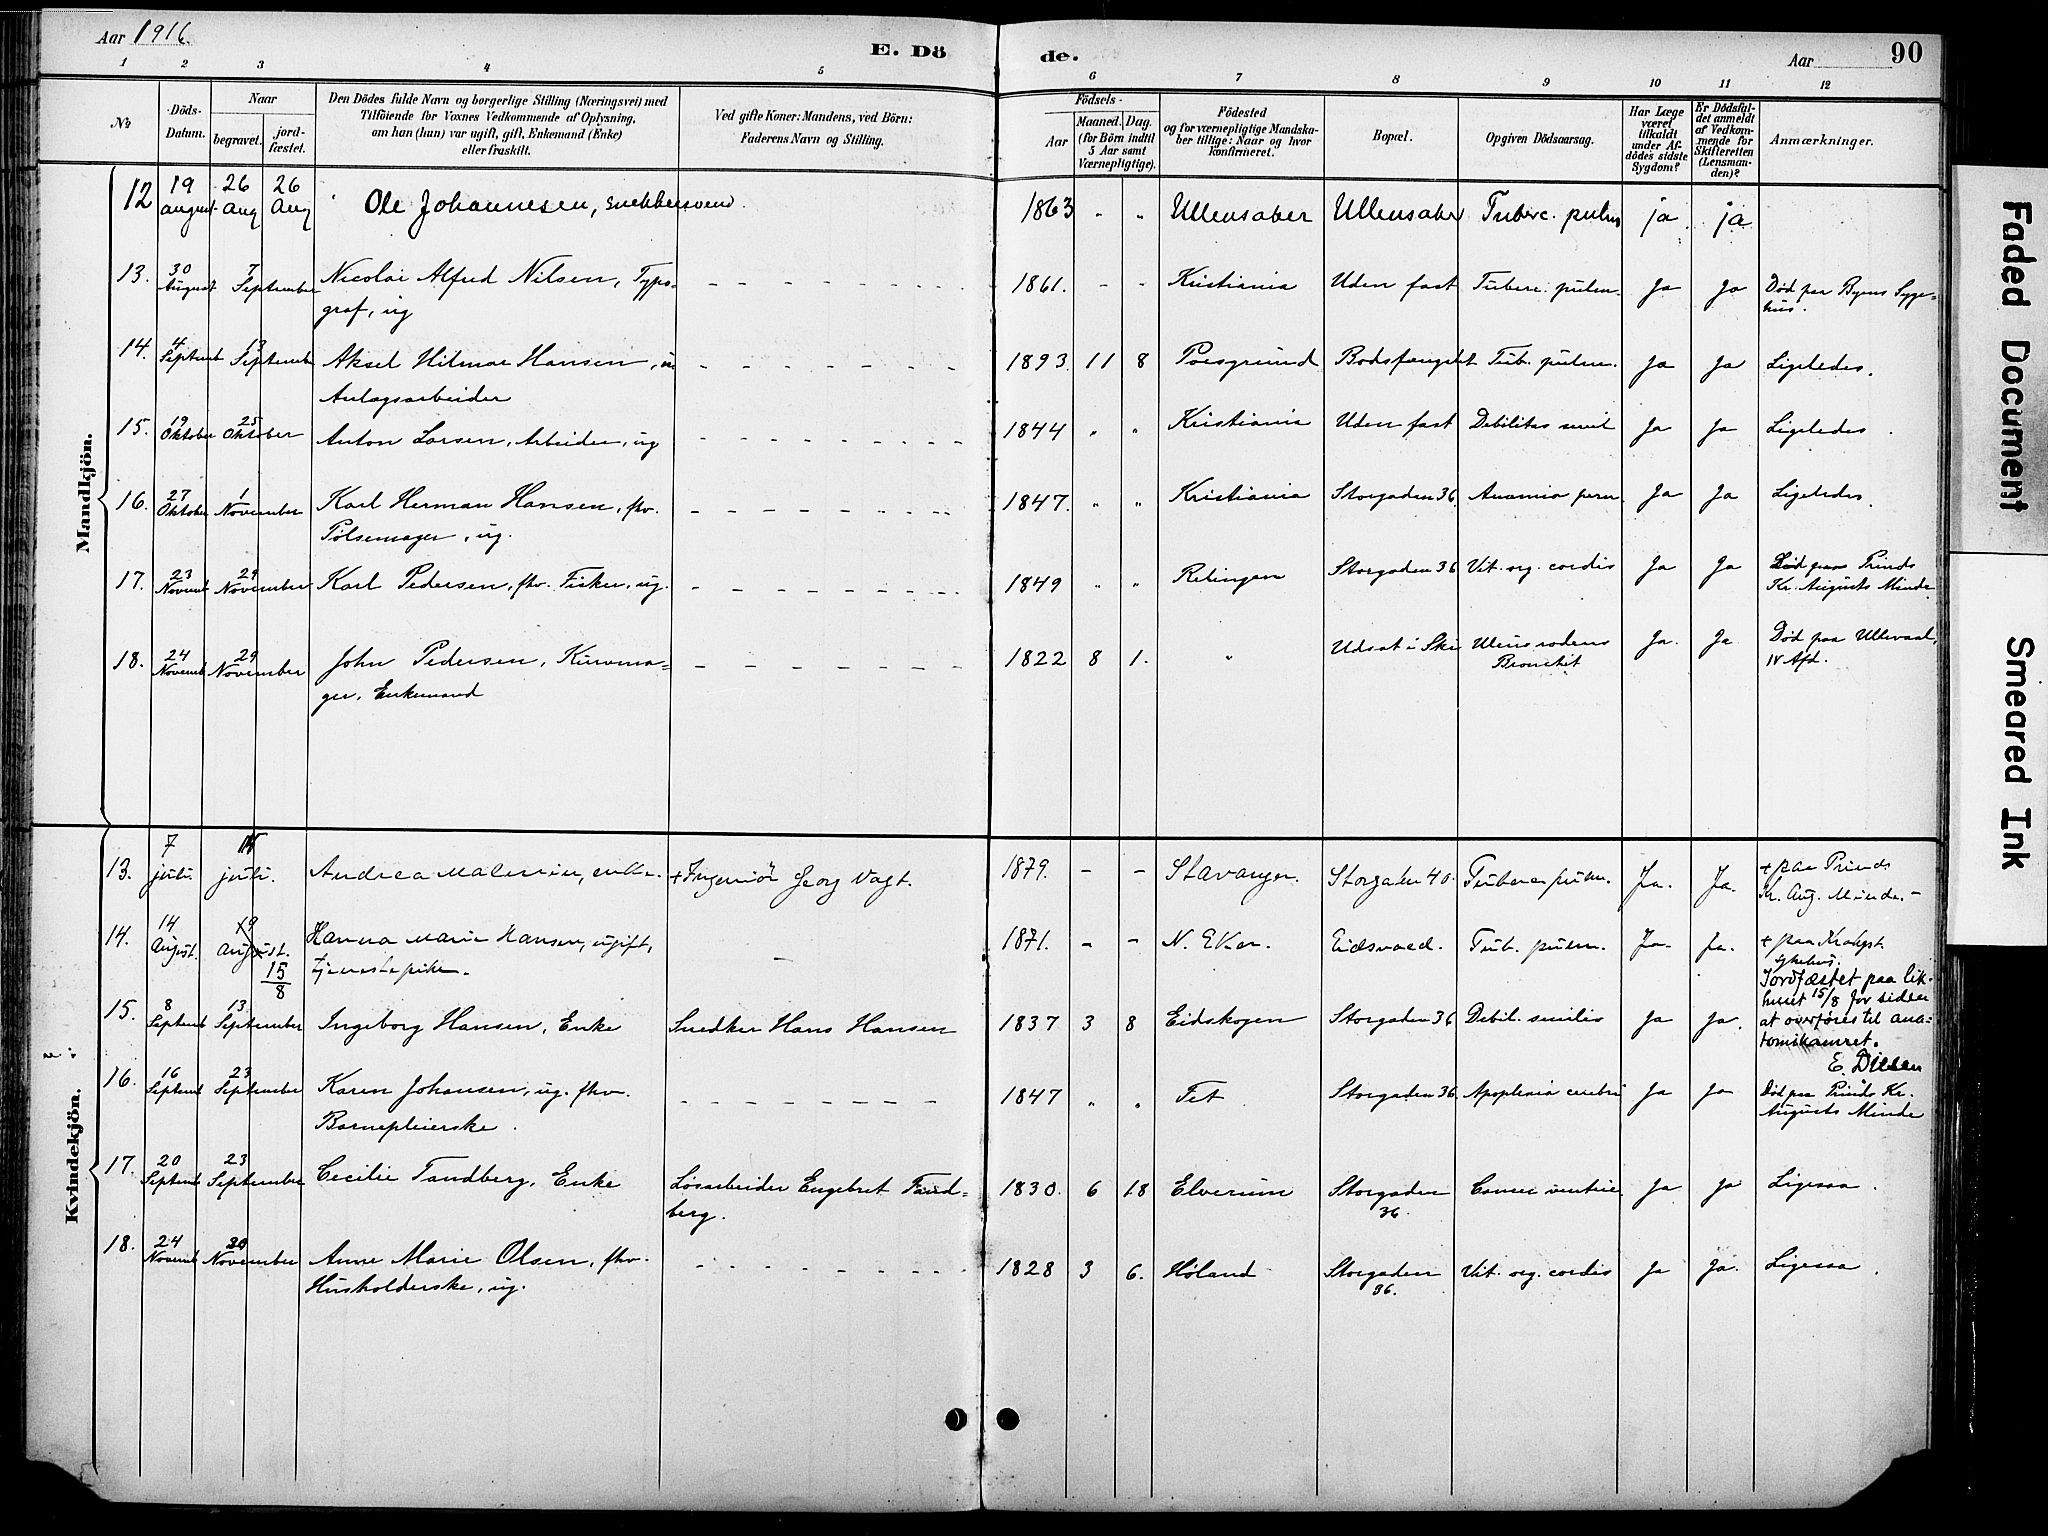 Aar 1916.
E. Dö
de.
Aar
90
1 2 3 4 5 6 7 8 9 10 11 12
No
Döds-Datum.
Naar
begravet.
jordfæstet.
Den Dödes fulde Navn og borgerlige Stilling (Næringsvei) med
Tilföiende for Voxnes Vedkommende af Oplysning,
om han (hun) var ugift, gift, Enkemand (Enke)
eller fraskilt.
Ved gifte Koner: Mandens, ved Börn:
Faderens Navn og Stilling.
Födsels-
Aar
Maaned. Dag.
(for Börn indtil
5 Aar samt
Værnepligtige).
Födested
og for værnepligtige Mandska-
ber tillige: Naar og hvor
konfirmeret.
Bopæl.
Opgiven Dödsaarsag.
Har Læge
været
tilkaldt
under Af-
dödes sidste
Sygdom?
Er Dödsfal-
det anmeldt
af Vedkom-
mende for
Skifteretten
(Lensman-
den)?
Anmærkninger.
Mandkjön.
12 19 august 26 Aug 26 Aug Ole Johannesen, snekkersvend. 1863 " " Ullensaker Ullensaker Tuberc. pulm ja ja
13. 30 August 7 September Nicolai Alfred Nilsen, Typo-
graf, ug 1861. - - Kristiania Uden fast Tuberc. pulm. Ja Ja Død paa Byens Syge-
hus.
14. 4 Septemb 13 September Aksel Hilmar Hansen, ug
Anlægsarbeider 1893 11 8 Porsgrund Bodsfængslet Tub. pulm. Ja Ja Ligeledes.
15. 19 Oktober 25 Oktober Anton Larsen, Arbeider, ug 1844 " " Kristiania Uden fast Debilitas senil Ja Ja Ligeledes.
16. 27 Oktober 1 November Karl Herman Hansen, fhv.
Pølsemager, ug. 1847. " " Kristiania Storgaden 36 Anæmia pern. Ja Ja Ligeledes.
17. 23 Novemb 29 November Karl Pedersen, fhv. Fisker, ug. 1849 " " Relingen Storgaden 36 Vit. org. cordis Ja Ja Død paa Prinds
Kr. Augusts Minde
18. 24 Novemb 29 November John Pedersen, Kurvma-
ger, Enkemand 1822 8 1. " Udsat i Ski Ulcus rodens
Bronchit Ja. Ja Død paa Ullevaal,
IV Afd.
Kvindekjön.
13. 7 juli. juli. Andrea enke. + Ingeniør Georg Vogt. 1879. - - Stavanger. Storgaten 40. Tuberc pulm. Ja. Ja. + paa Prinds
Kr. Aug. Minde. -
14. 14 August. 19 August. 15/8 Hanna Marie Hansen, ugift,
tjenestepike. - 1871. - - N. Eker. Eidsvold. Tub. pulm. Ja. Ja. + paa
sykehus.
Jordfæstet paa lik-
huset 15/8 for siden
at overføres til ana-
tomikamret.
E.
15. 8 Septemb 13 September Ingeborg Hansen, Enke Snedker Hans Hansen 1837 3 8 Eidskogen Storgaden 36 Debil. senilis Ja Ja.
16. 16 Septemb 23 September Karen Johansen, ug. fhv.
Barnepleierske. 1847 " " Fet Storgaden 36. Apoplexia cerebri Ja Ja Død paa Prinds Kr.
Augusts Minde
17. 20 Septemb 23 September Cecilie Tandberg, Enke Løsarbeider Engebret Tand-
berg. 1830. 6 18 Elverum Storgaden
36. Cancer ventric Ja Ja Ligesaa.
18. 24 Novemb 30 November Anne Marie Olsen, fhv.
Husholderske, ug. 1828 3 6. Høland Storgaden
36. Vit. org. cordis Ja Ja. Ligesaa.
Faded Document
Smeared Ink